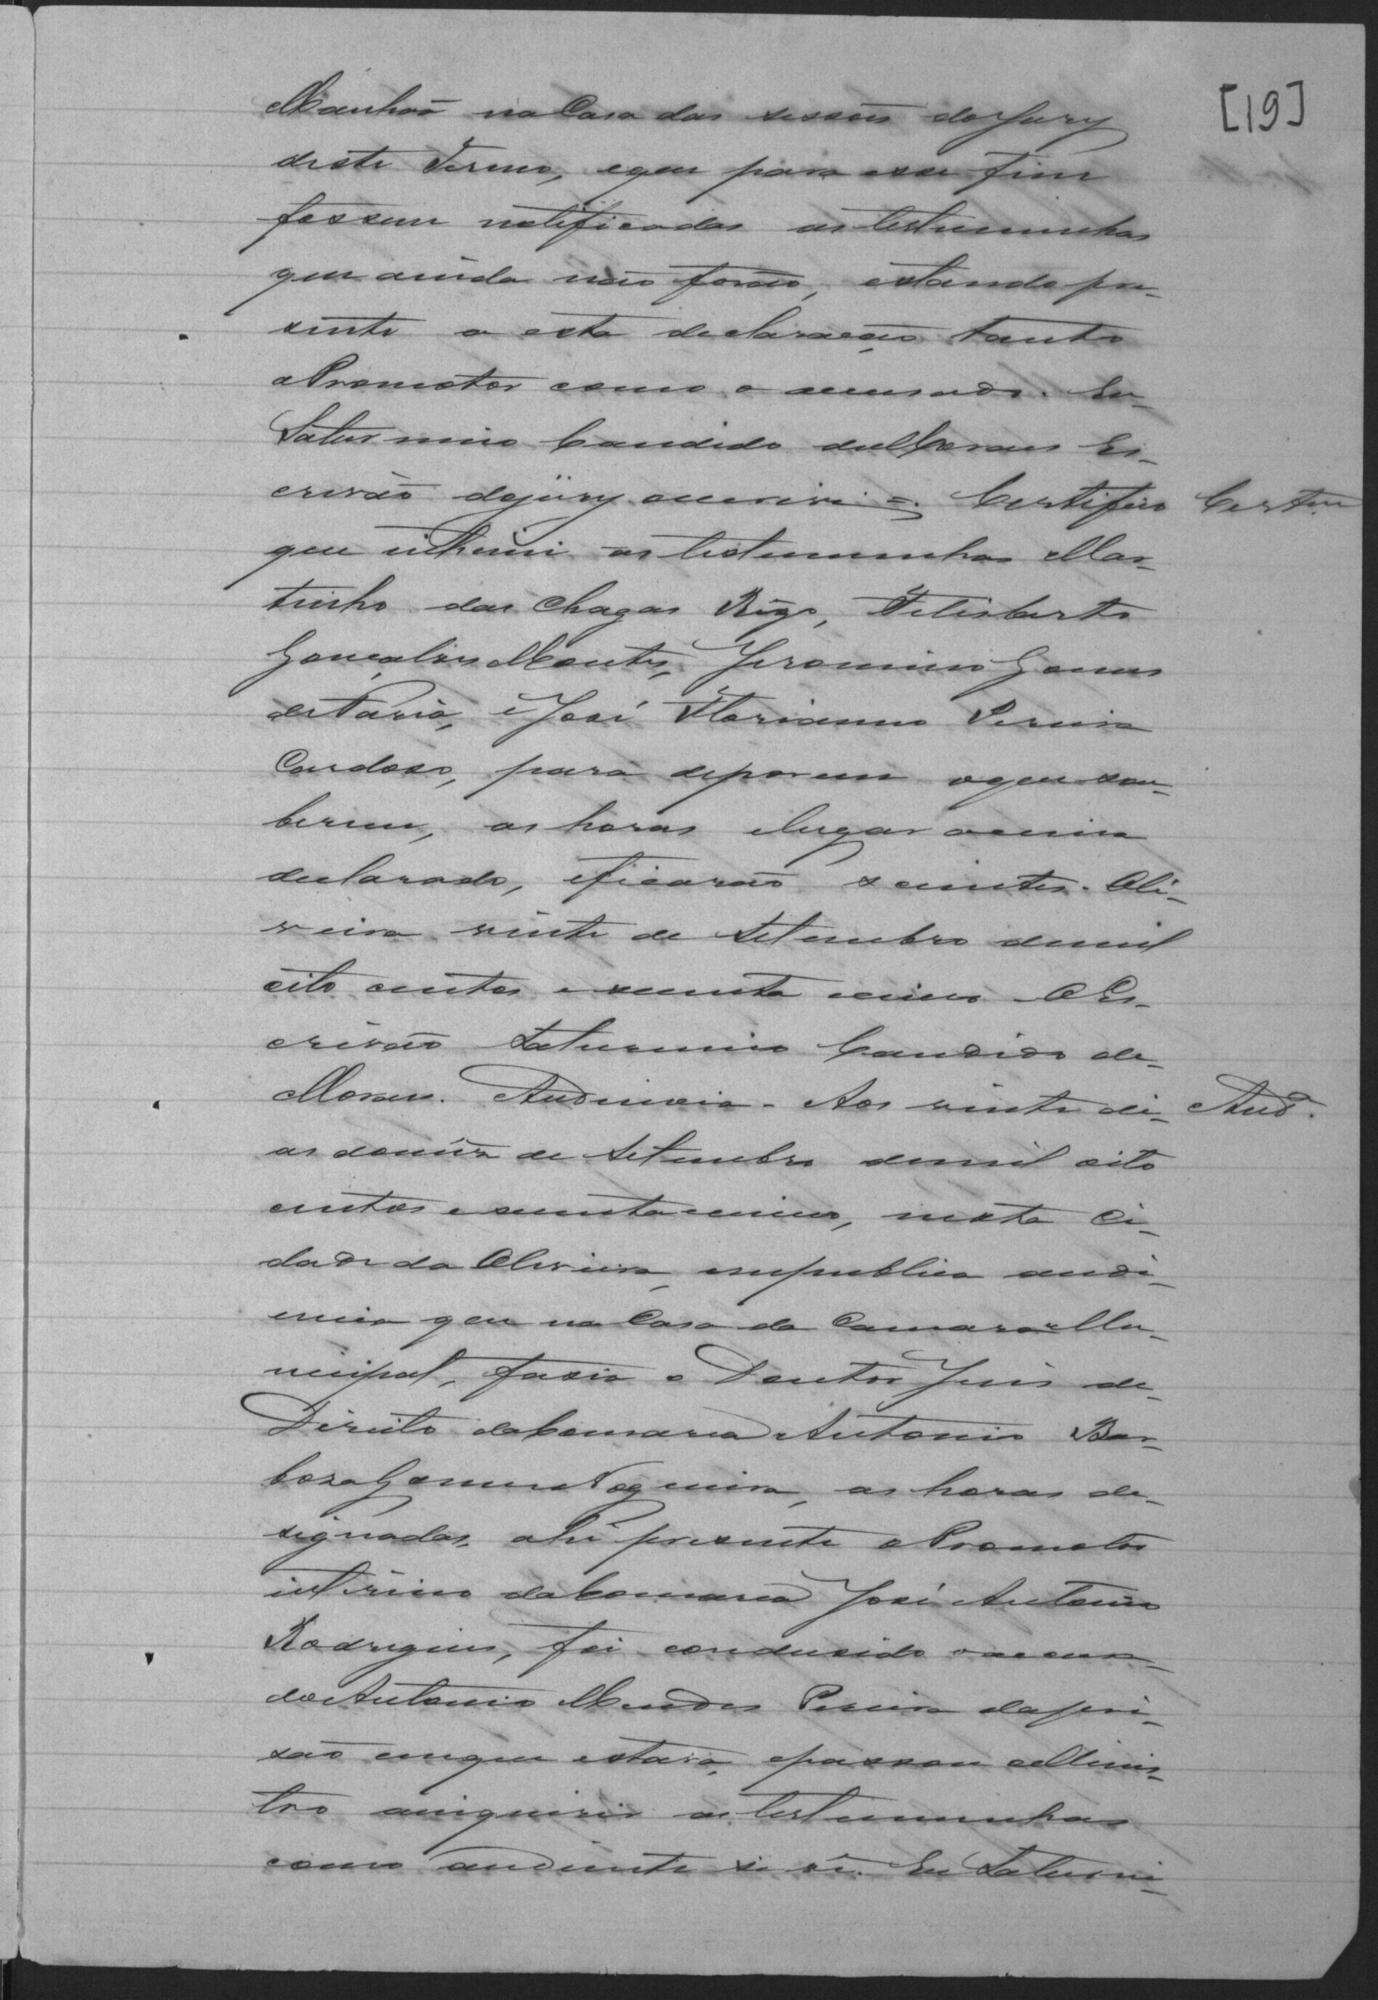 [19]
Manhãa na Casa das sessões do Jury
deste Termo, eque para esse fim
fossem notificadas as testemunhas
que ainda não forão, estando pre-
sente a esta declaração tanto
o Promotor como o accusado. Eu
Saturnino Candido de Moraes Es-
crivão do jury oescrivi =. Certifico
Certam
que intimei as testemunhas Mar-
tinho das Chagas Rigo, Felisberto
Gonçalves Montes, Jeronimo Gomes
de Faria, e José Florianno Pereira
Cardoso, para deporem oque sou-
berem, as horas elugar acima
declarado, eficarão scientes. Oli-
veira vinte de Setembro demil
oito centos e secenta ecinco O Es-
crivão Saturnino Candido de
Moraes. Audiencia - Aos vinte di-
Audª.
as domez de Setembro demil oito
centos e secenta ecinco, nesta Ci-
dade da Oliveira, empublica audi-
encia que na Casa da Camara Mu-
nicipal, fasia o Doutor Juis de
Direito da Comarca Antonio Bar-
boza Gomes Nogueira, as horas de-
signadas, ahi presente o Promotor
interino da Comarca José Antonio
Rodrigues, foi condusido oaccusa-
do Antonio Mendes Pereira da pri-
são emque estava, epassou o Minis-
tro ainquirir as testemunhas
como aodiente se vê. Eu Saturni-